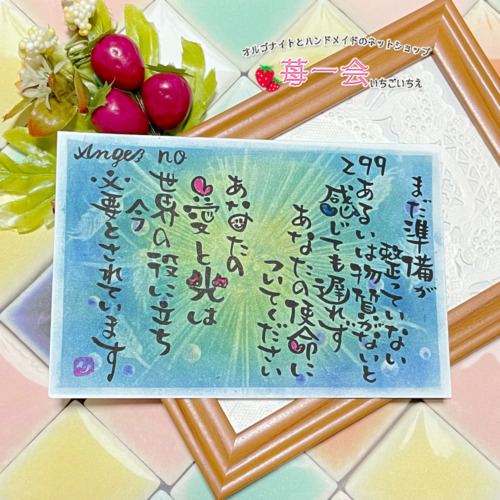 オルゴナイトとハンドメイドのネットショップ
苺一会
いちごいちえ
Angel no
299
まだ準備が
整っていない
あるいは物質がないと
感じても遅れず
あなたの使命に
ついてください
あなたの
愛と光は
世界の役に立ち
今
必要とされています